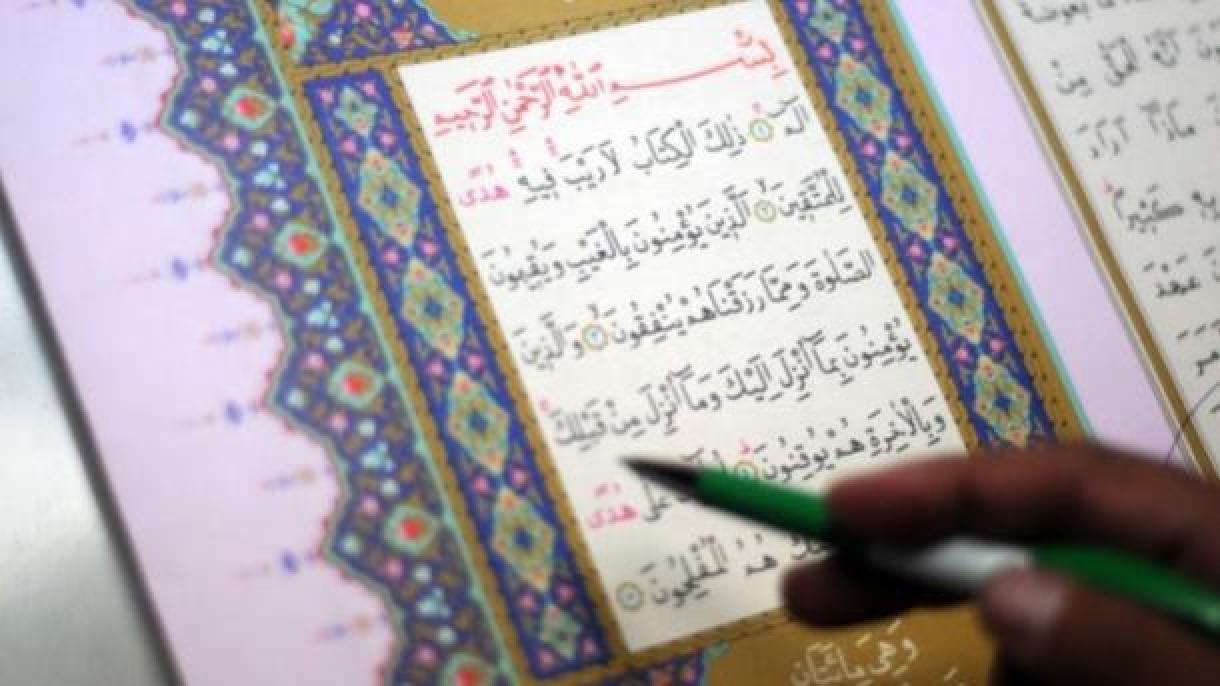 بِسْمِ اللّٰهِ الرَّحْمٰنِ الرَّحِيمِ
الٓمٓ ﴿١﴾ ذٰلِكَ الْكِتَابُ لَا رَيْبَ فِيهِ هُدًى
لِلْمُتَّقِينَ ﴿٢﴾ الَّذِينَ يُؤْمِنُونَ بِالْغَيْبِ وَيُقِيمُونَ
الصَّلٰوةَ وَمِمَّا رَزَقْنَاهُمْ يُنْفِقُونَ ﴿٣﴾ وَالَّذِينَ
يُؤْمِنُونَ بِمَٓا اُنْزِلَ اِلَيْكَ وَمَٓا اُنْزِلَ مِنْ قَبْلِكَ
وَبِالْاٰخِرَةِ هُمْ يُوقِنُونَ ﴿٤﴾
عَلٰى هُدًى
هُمُ الْمُفْلِحُونَ ﴿٥﴾
وَهِيَ مِائَتَانِ
مِنْ
مَاذَٓا اَرَادَ
كَثِيرًا
عَهْدَ